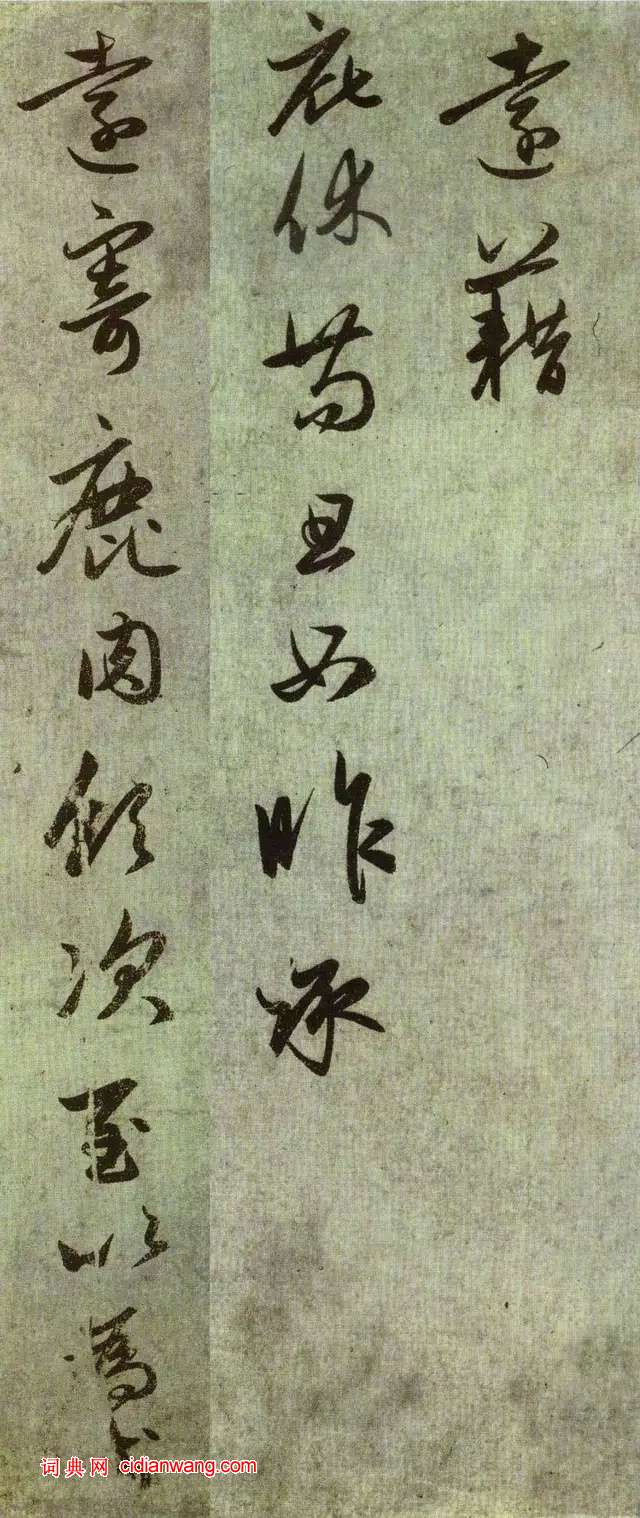 遠藉
庇休苟且如昨承
遠寄鹿肉領次至以為
词典网 cidianwang.com